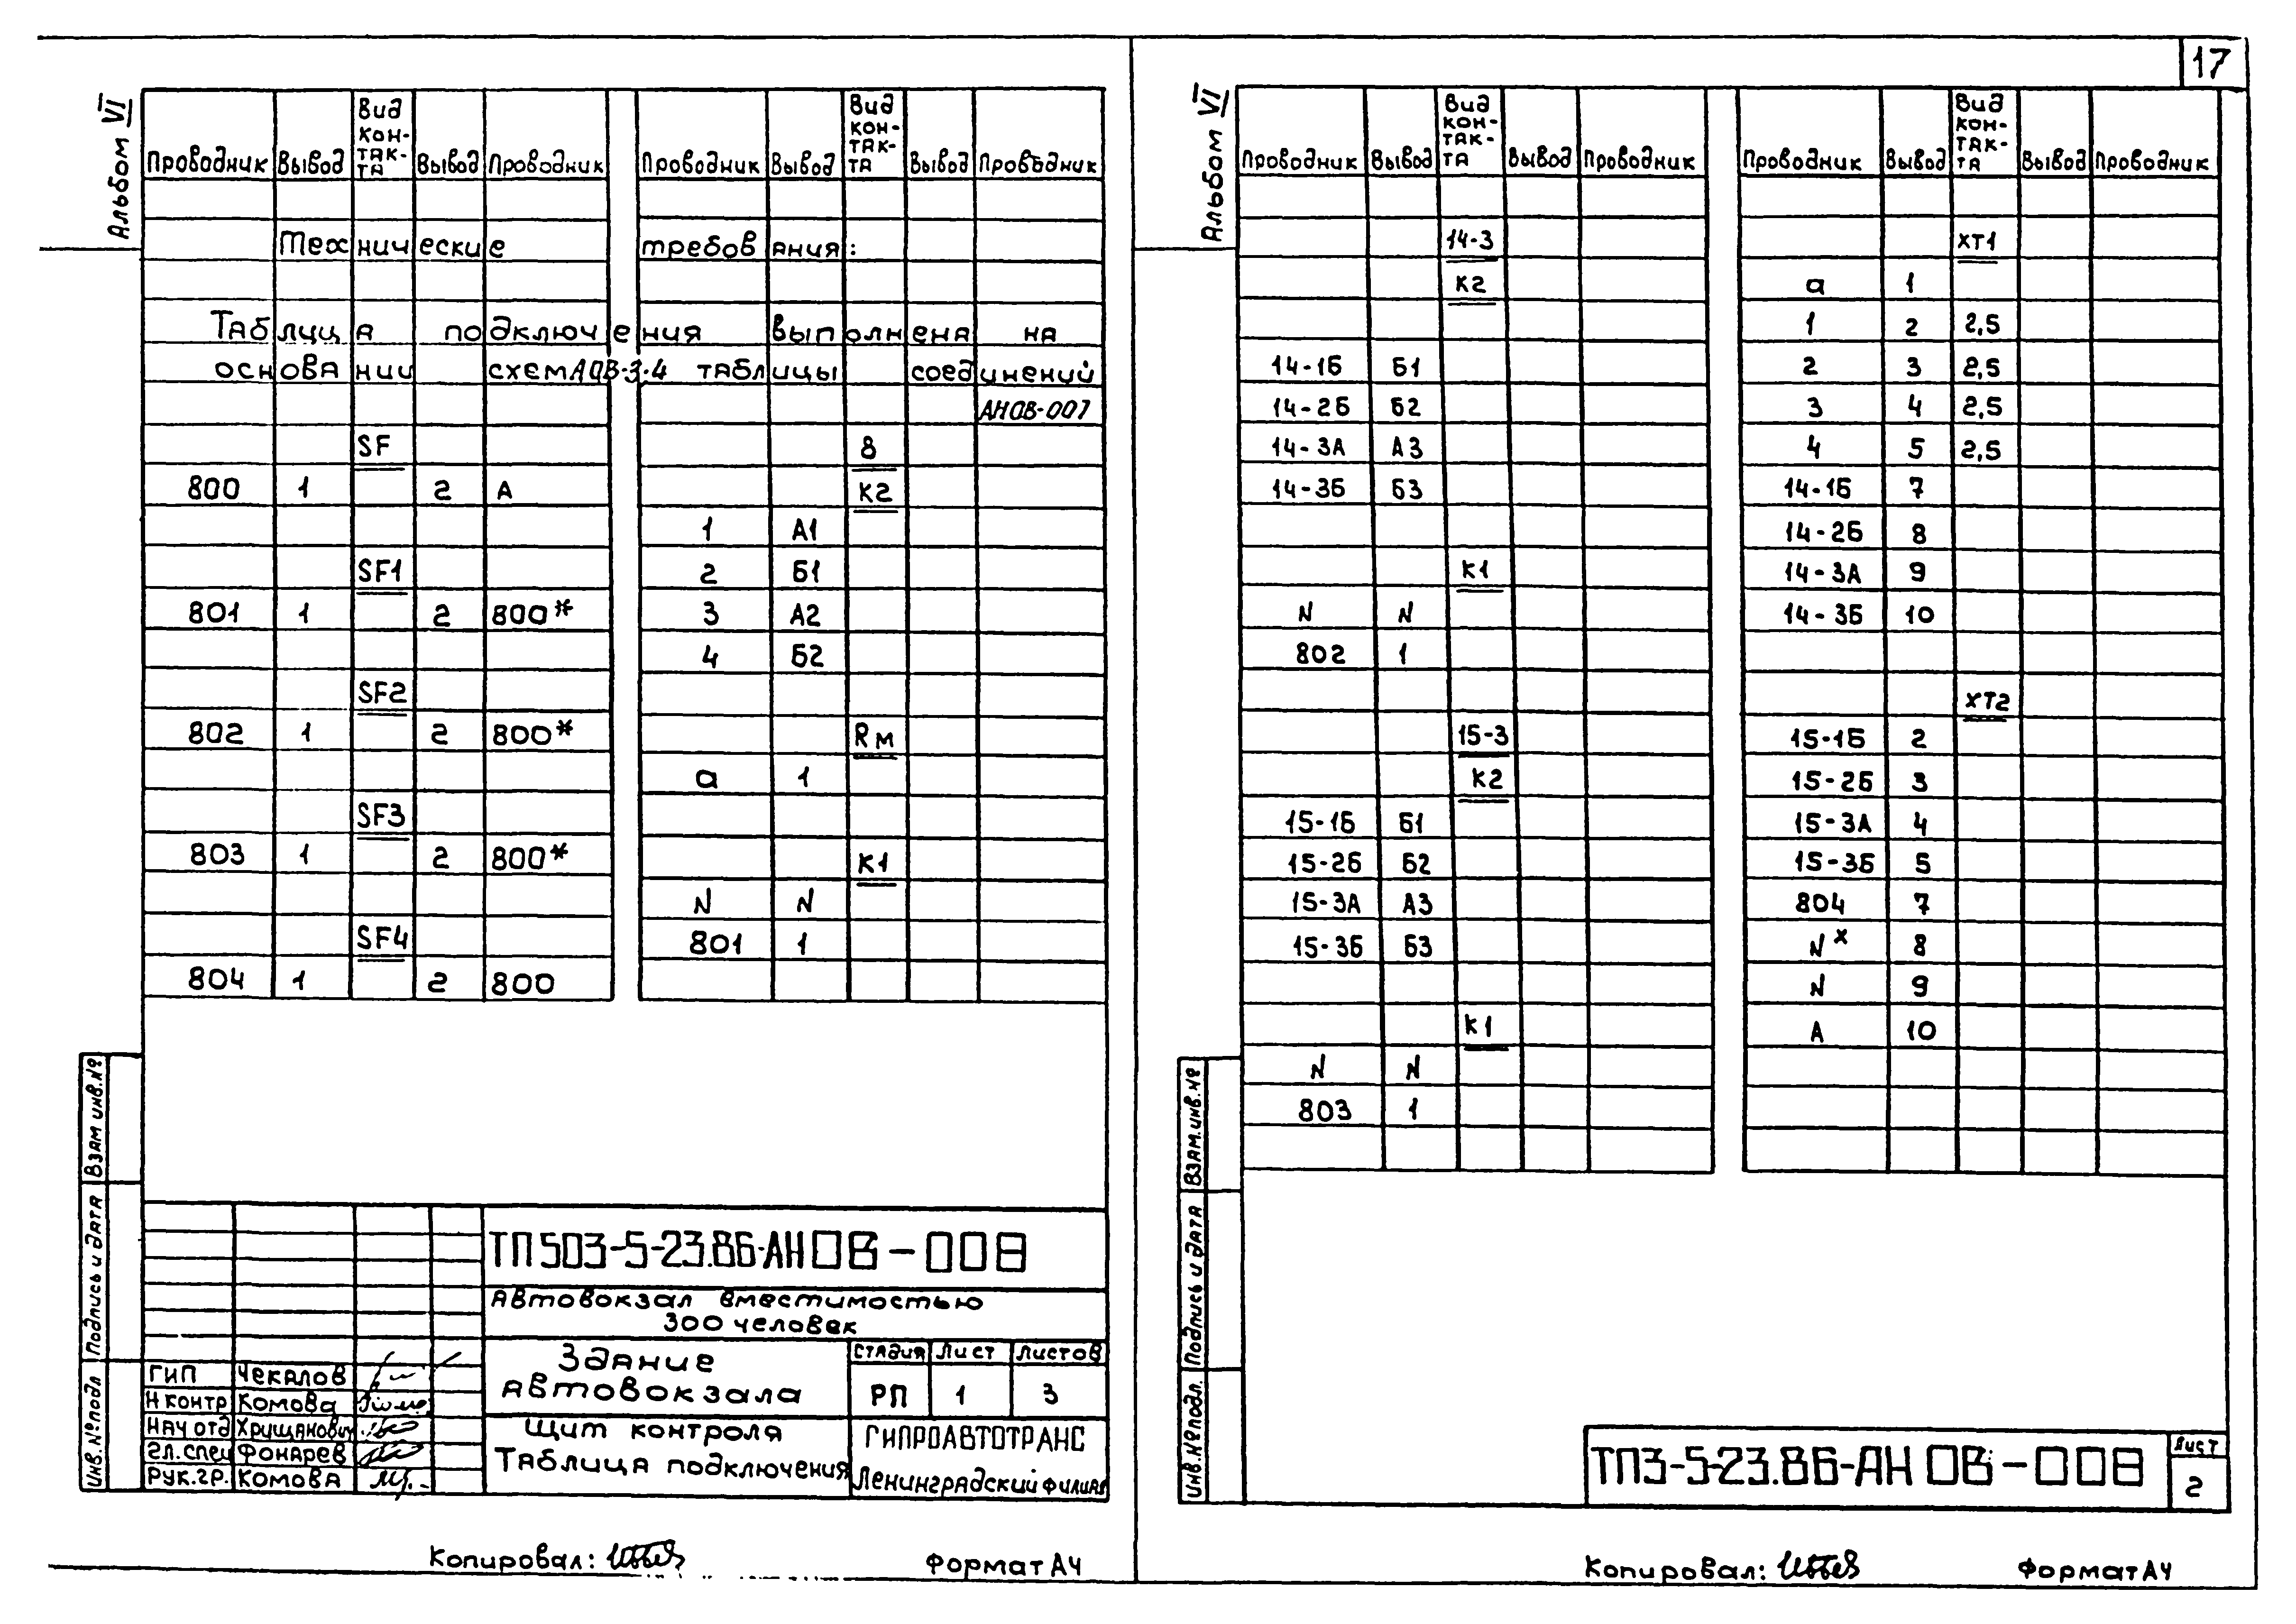 17
Альбом VI
Проводник Вывод Вид кон-так-та Вывод Проводник
Проводник Вывод Вид кон-так-та Вывод Проводник
Технические требования:
Таблица подключения выполнена на
основании схем АОВ-3.4 таблицы соединений
АНОВ-007
SF
800 1 2 А
SF1
801 1 2 800*
SF2
802 1 2 800*
SF3
803 1 2 800*
SF4
804 1 2 800
8
К2
1 А1
2 Б1
3 А2
4 Б2
Rм
а 1
К1
N N
801 1
Взам инв.№
Подпись и дата
Инв.№подл
ТП503-5-23.86-АНОВ-008
Автовокзал вместимостью
300 человек
Здание
автовокзала
Стадия Лист Листов
РП 1 3
Щит контроля
Таблица подключения
ГИПРОАВТОТРАНС
Ленинградский филиал
ГИП Чекалов
Н контр Комова
Нач отд Хрищанович
Гл.спец Фонарев
Рук.гр. Комова
Копировал:
Формат А4
Альбом VI
Проводник Вывод Вид кон-так-та Вывод Проводник
Проводник Вывод Вид кон-так-та Вывод Проводник
14-3
К2
14-1Б Б1
14-2Б Б2
14-3А А3
14-3Б Б3
К1
N N
802 1
15-3
К2
15-1Б Б1
15-2Б Б2
15-3А А3
15-3Б Б3
К1
N N
803 1
ХТ1
а 1
1 2 2,5
2 3 2,5
3 4 2,5
4 5 2,5
14-1Б 7
14-2Б 8
14-3А 9
14-3Б 10
ХТ2
15-1Б 2
15-2Б 3
15-3А 4
15-3Б 5
804 7
N* 8
N 9
А 10
Взам.инв.№
Подпись и дата
Инв.№подл.
ТП3-5-23.86-АНОВ-008
Лист
2
Копировал:
Формат А4